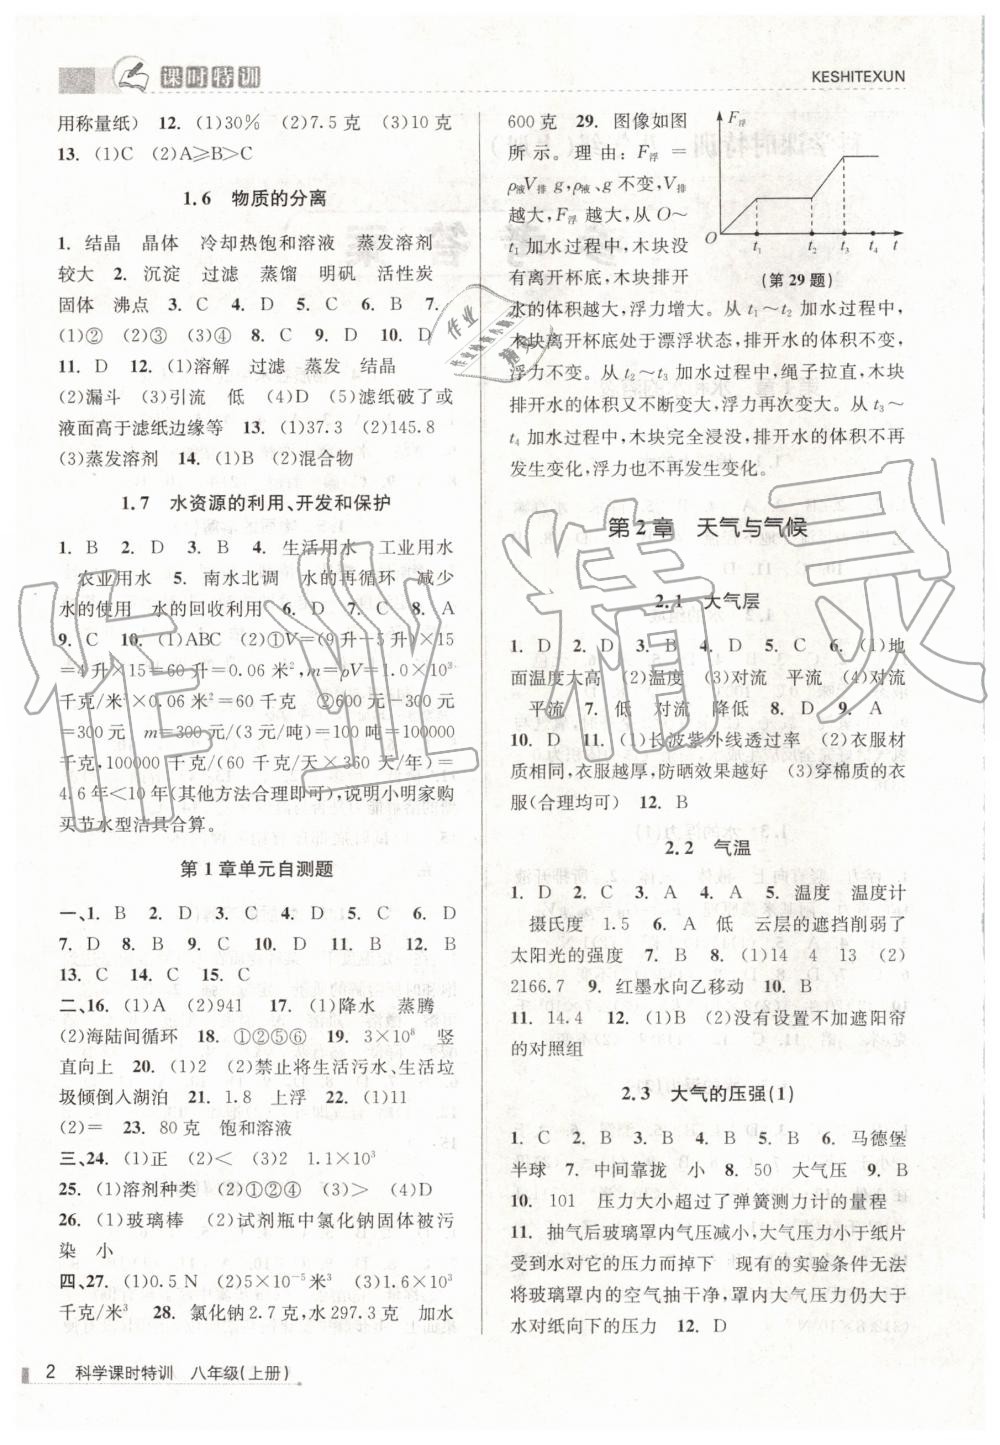 课时特训
KESHITEXUN
用称量纸) 12. (1)30% (2)7.5 克 (3)10 克
13. (1)C (2)A≥B>C
1.6 物质的分离
1. 结晶 晶体 冷却热饱和溶液 蒸发溶剂
较大 2. 沉淀 过滤 蒸馏 明矾 活性炭
固体 沸点 3. C 4. D 5. C 6. B 7.
(1)② (2)③ (3)④ 8. C 9. D 10. D
11. D 12. (1)溶解 过滤 蒸发 结晶
(2)漏斗 (3)引流 低 (4)D (5)滤纸破了或
液面高于滤纸边缘等 13. (1)37.3 (2)145.8
(3)蒸发溶剂 14. (1)B (2)混合物
1.7 水资源的利用、开发和保护
1. B 2. B 3. B 4. 生活用水 工业用水
农业用水 5. 南水北调 水的再循环 减少
水的使用 水的回收利用 6. D 7. C 8. A
9. C 10. (1)ABC (2)①V=(9升-5升)×15
=4升×15=60升=0.06米², m=ρV=1.0×10³
千克/米³×0.06米²=60千克 ②600元-300元
=300元 m=300元/(3元/吨)=100吨=100000
千克,100000千克/(60千克/天×360天/年)=
4.6年<10年(其他方法合理即可),说明小明家购
买节水型洁具合算。
第1章单元自测题
一、1. B 2. D 3. D 4. D 5. C 6. D
7. D 8. B 9. C 10. D 11. D 12. B
13. C 14. C 15. C
二、16. (1)A (2)941 17. (1)降水 蒸腾
(2)海陆间循环 18. ①②⑤⑥ 19. 3×10⁸ 竖
直向上 20. (1)2 (2)禁止将生活污水、生活垃
圾倾倒入湖泊 21. 1.8 上浮 22. (1)11
(2)= 23. 80克 饱和溶液
三、24. (1)正 (2)< (3)2 1.1×10³
25. (1)溶剂种类 (2)①②④ (3)> (4)D
26. (1)玻璃棒 (2)试剂瓶中氯化钠固体被污
染 小
四、27. (1)0.5 N (2)5×10⁻⁵米³ (3)1.6×10³
千克/米³ 28. 氯化钠2.7克,水297.3克 加水
600克 29. 图像如图
所示。理由:F浮=
ρ液V排g,ρ液、g不变,V排
越大,F浮越大,从O~
t₁加水过程中,木块没
有离开杯底,木块排开
水的体积越大,浮力增大。从t₁~t₂加水过程中,
木块离开杯底处于漂浮状态,排开水的体积不变,
浮力不变。从t₂~t₃加水过程中,绳子拉直,木块
排开水的体积又不断变大,浮力再次变大。从t₃~
t₄加水过程中,木块完全浸没,排开水的体积不再
发生变化,浮力也不再发生变化。
F浮
O t₁ t₂ t₃ t₄ t
(第29题)
第2章 天气与气候
2.1 大气层
1. D 2. D 3. B 4. D 5. C 6. (1)地
面温度太高 (2)温度 (3)对流 平流 (4)对流
平流 7. 低 对流 降低 8. D 9. A
10. D 11. (1)长波紫外线透过率 (2)衣服材
质相同,衣服越厚,防晒效果越好 (3)穿棉质的衣
服(合理均可) 12. B
2.2 气温
1. D 2. C 3. A 4. A 5. 温度 温度计
摄氏度 1.5 6. A 低 云层的遮挡削弱了
太阳光的强度 7. B 8. (1)14 4 13 (2)
2166.7 9. 红墨水向乙移动 10. B
11. 14.4 12. (1)B (2)没有设置不加遮阳帘
的对照组
2.3 大气的压强(1)
1. C 2. B 3. B 4. B 5. B 6. 马德堡
半球 7. 中间靠拢 小 8. 50 大气压 9. B
10. 101 压力大小超过了弹簧测力计的量程
11. 抽气后玻璃罩内气压减小,大气压力小于纸片
受到水对它的压力而掉下 现有的实验条件无法
将玻璃罩内的空气抽干净,罩内大气压力仍大于
水对纸向下的压力 12. D
作业精灵
2 科学课时特训 八年级(上册)